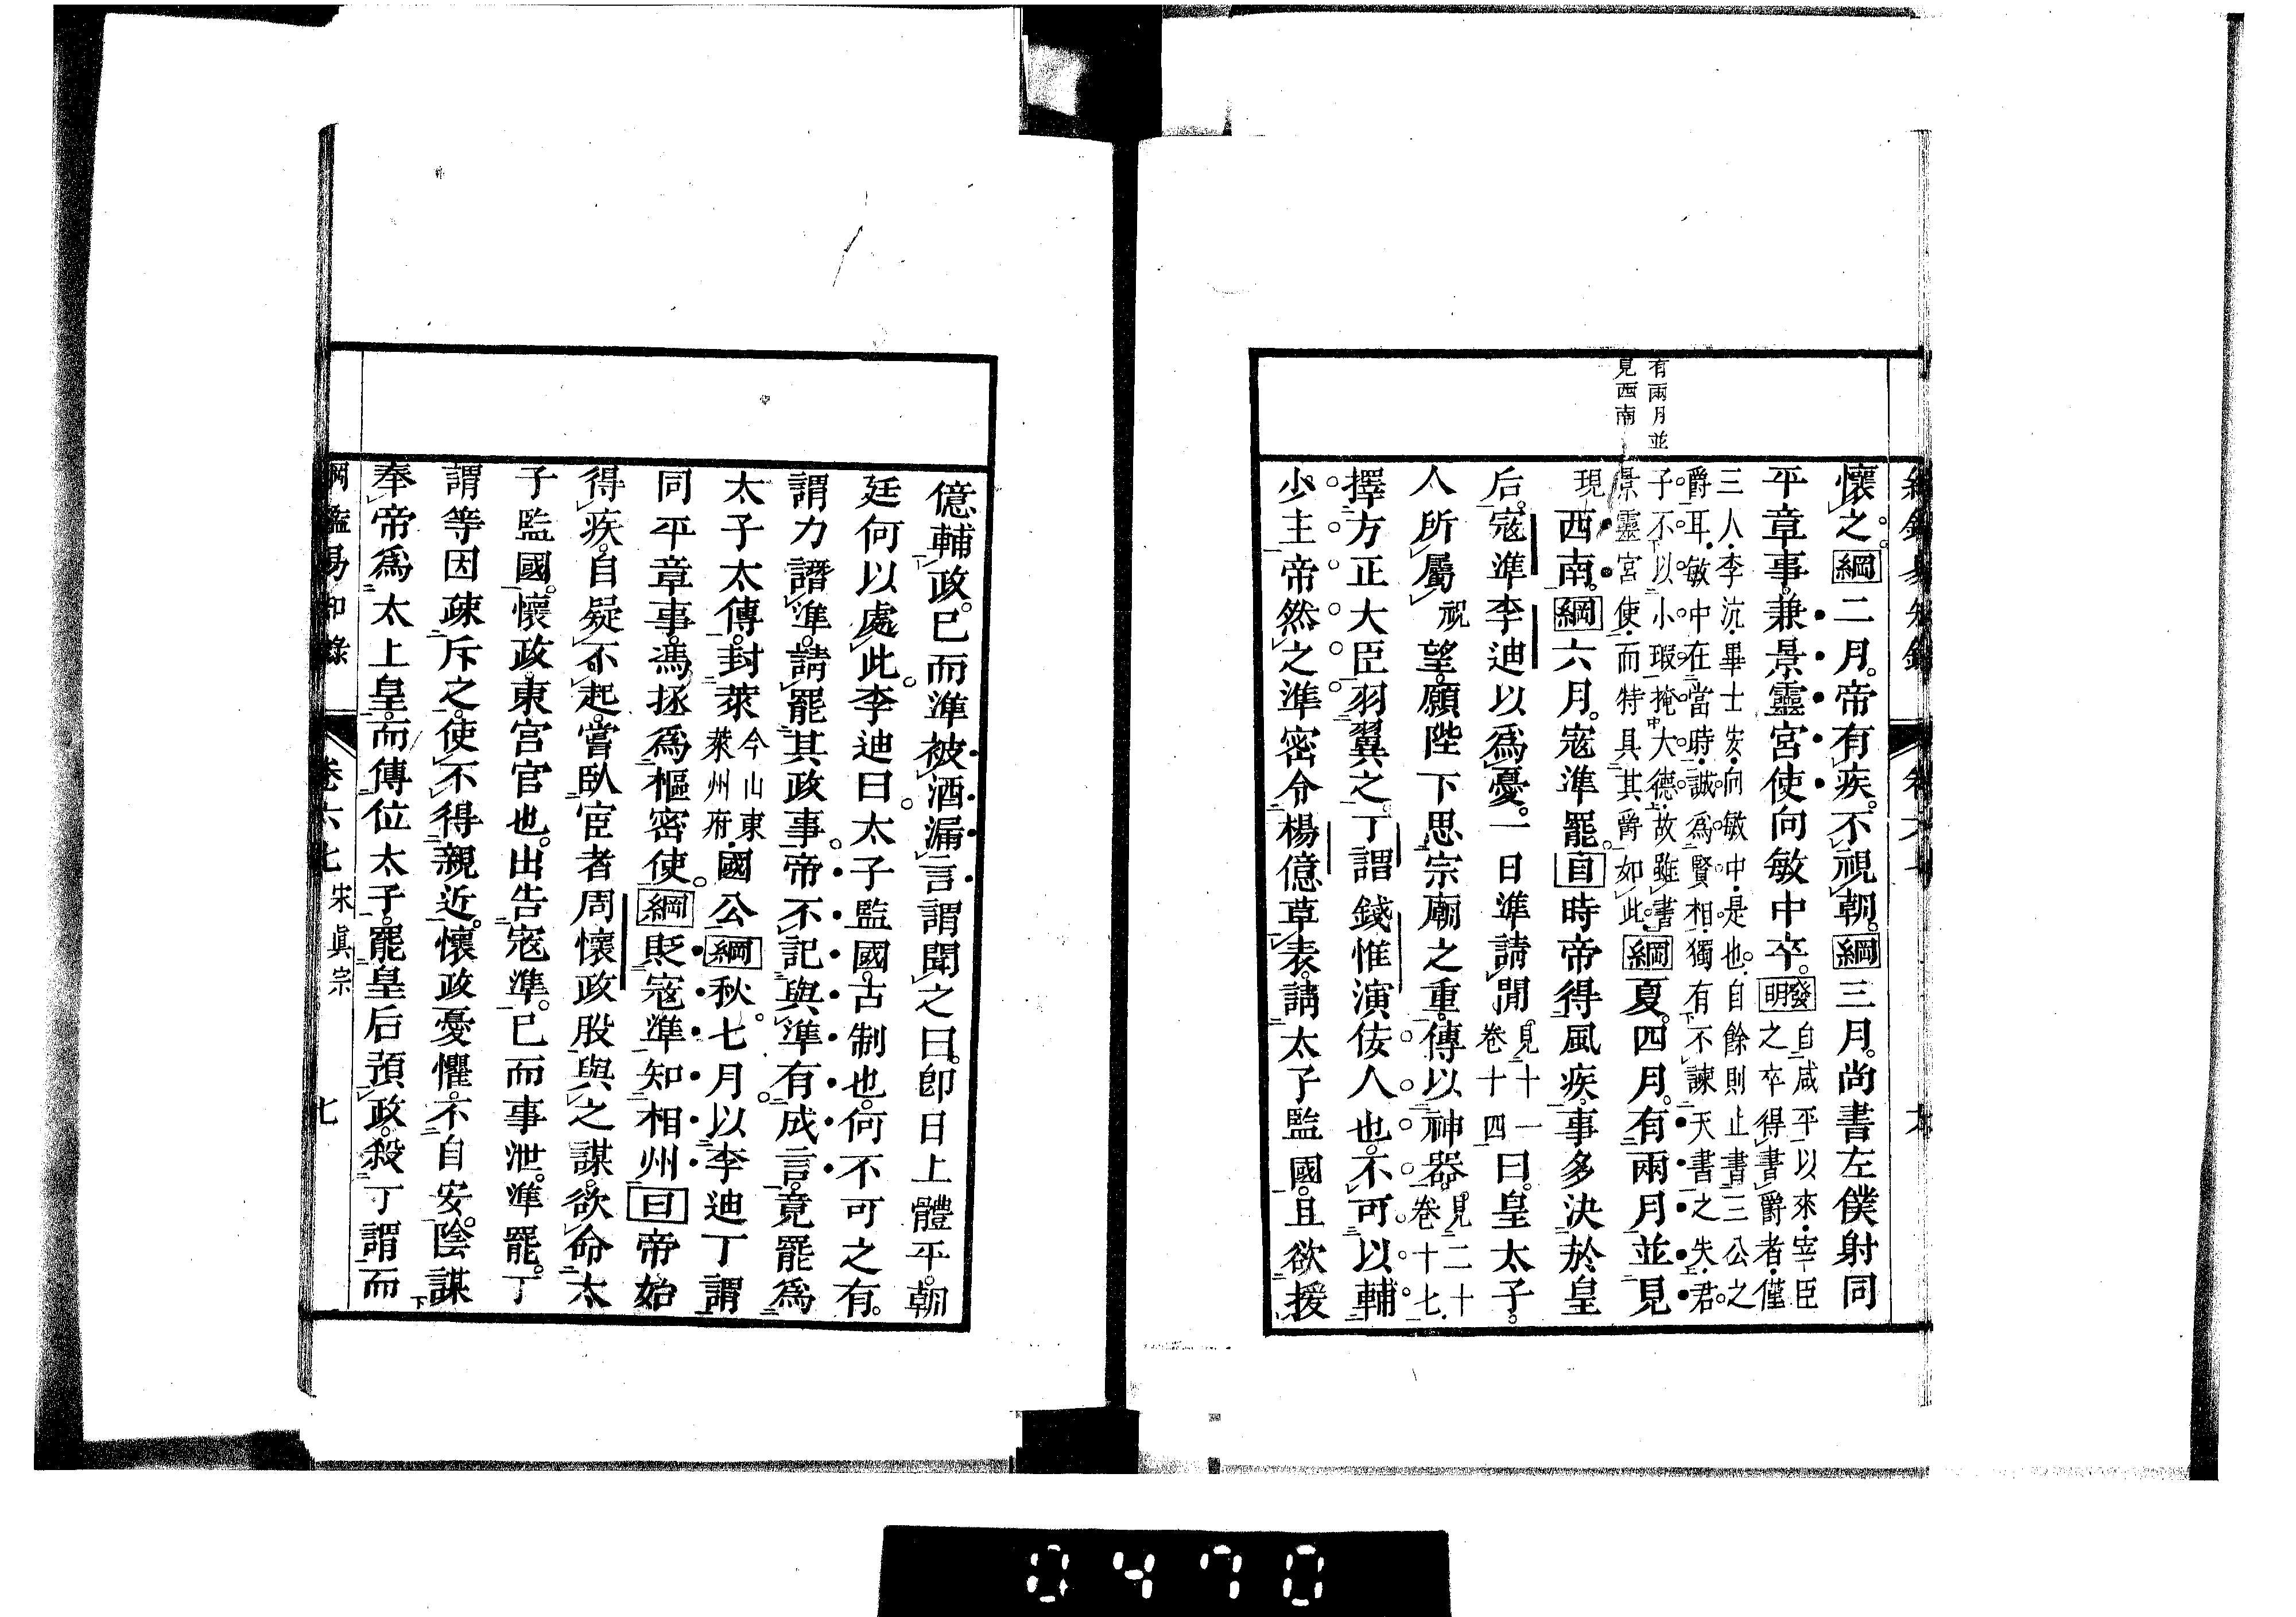 有兩月並
見西南
懷之。綱二月。帝有疾。不視朝。綱三月。尚書左僕射同
平章事。兼景靈宮使向敏中卒。發明自咸平以來。宰臣
之卒得書爵者。僅
三人。李沆。畢士安。向敏中。是也。自餘則止書三公之
爵耳。敏中在當時。誠爲賢相。獨有不諫天書之失。君
子不以小瑕掩大德。故雖書
景靈宮使。而特具其爵如此。綱夏。四月。有兩月並見
現
西南。綱六月。寇準罷。目時帝得風疾。事多決於皇
后。寇準李迪以爲憂。一日準請閒。見十一
卷十四曰。皇太子。
人所屬祝望。願陛下思宗廟之重。傳以神器。見二十
卷十七。
擇方正大臣羽翼之。丁謂錢惟演佞人也。不可以輔
少主。帝然之。準密令楊億草表。請太子監國。且欲援
億輔政。已而準被酒漏言。謂聞之曰。卽日上體平。朝
廷何以處此。李迪曰。太子監國。古制也。何不可之有。
謂力譖準。請罷其政事。帝不記與準有成言。竟罷爲
太子太傅。封萊今山東
萊州府。國公。綱秋。七月。以李迪丁謂
同平章事。馮拯爲樞密使。綱貶寇準知相州。目帝始
得疾。自疑不起。嘗臥宦者周懷政股與之謀。欲命太
子監國。懷政。東宮官也。出告寇準。已而事泄。準罷。丁
謂等因疎斥之。使不得親近。懷政憂懼。不自安。陰謀
奉帝爲太上皇。而傳位太子。罷皇后預政。殺丁謂而
綱鑑易知錄 卷六七 宋眞宗 七
0470